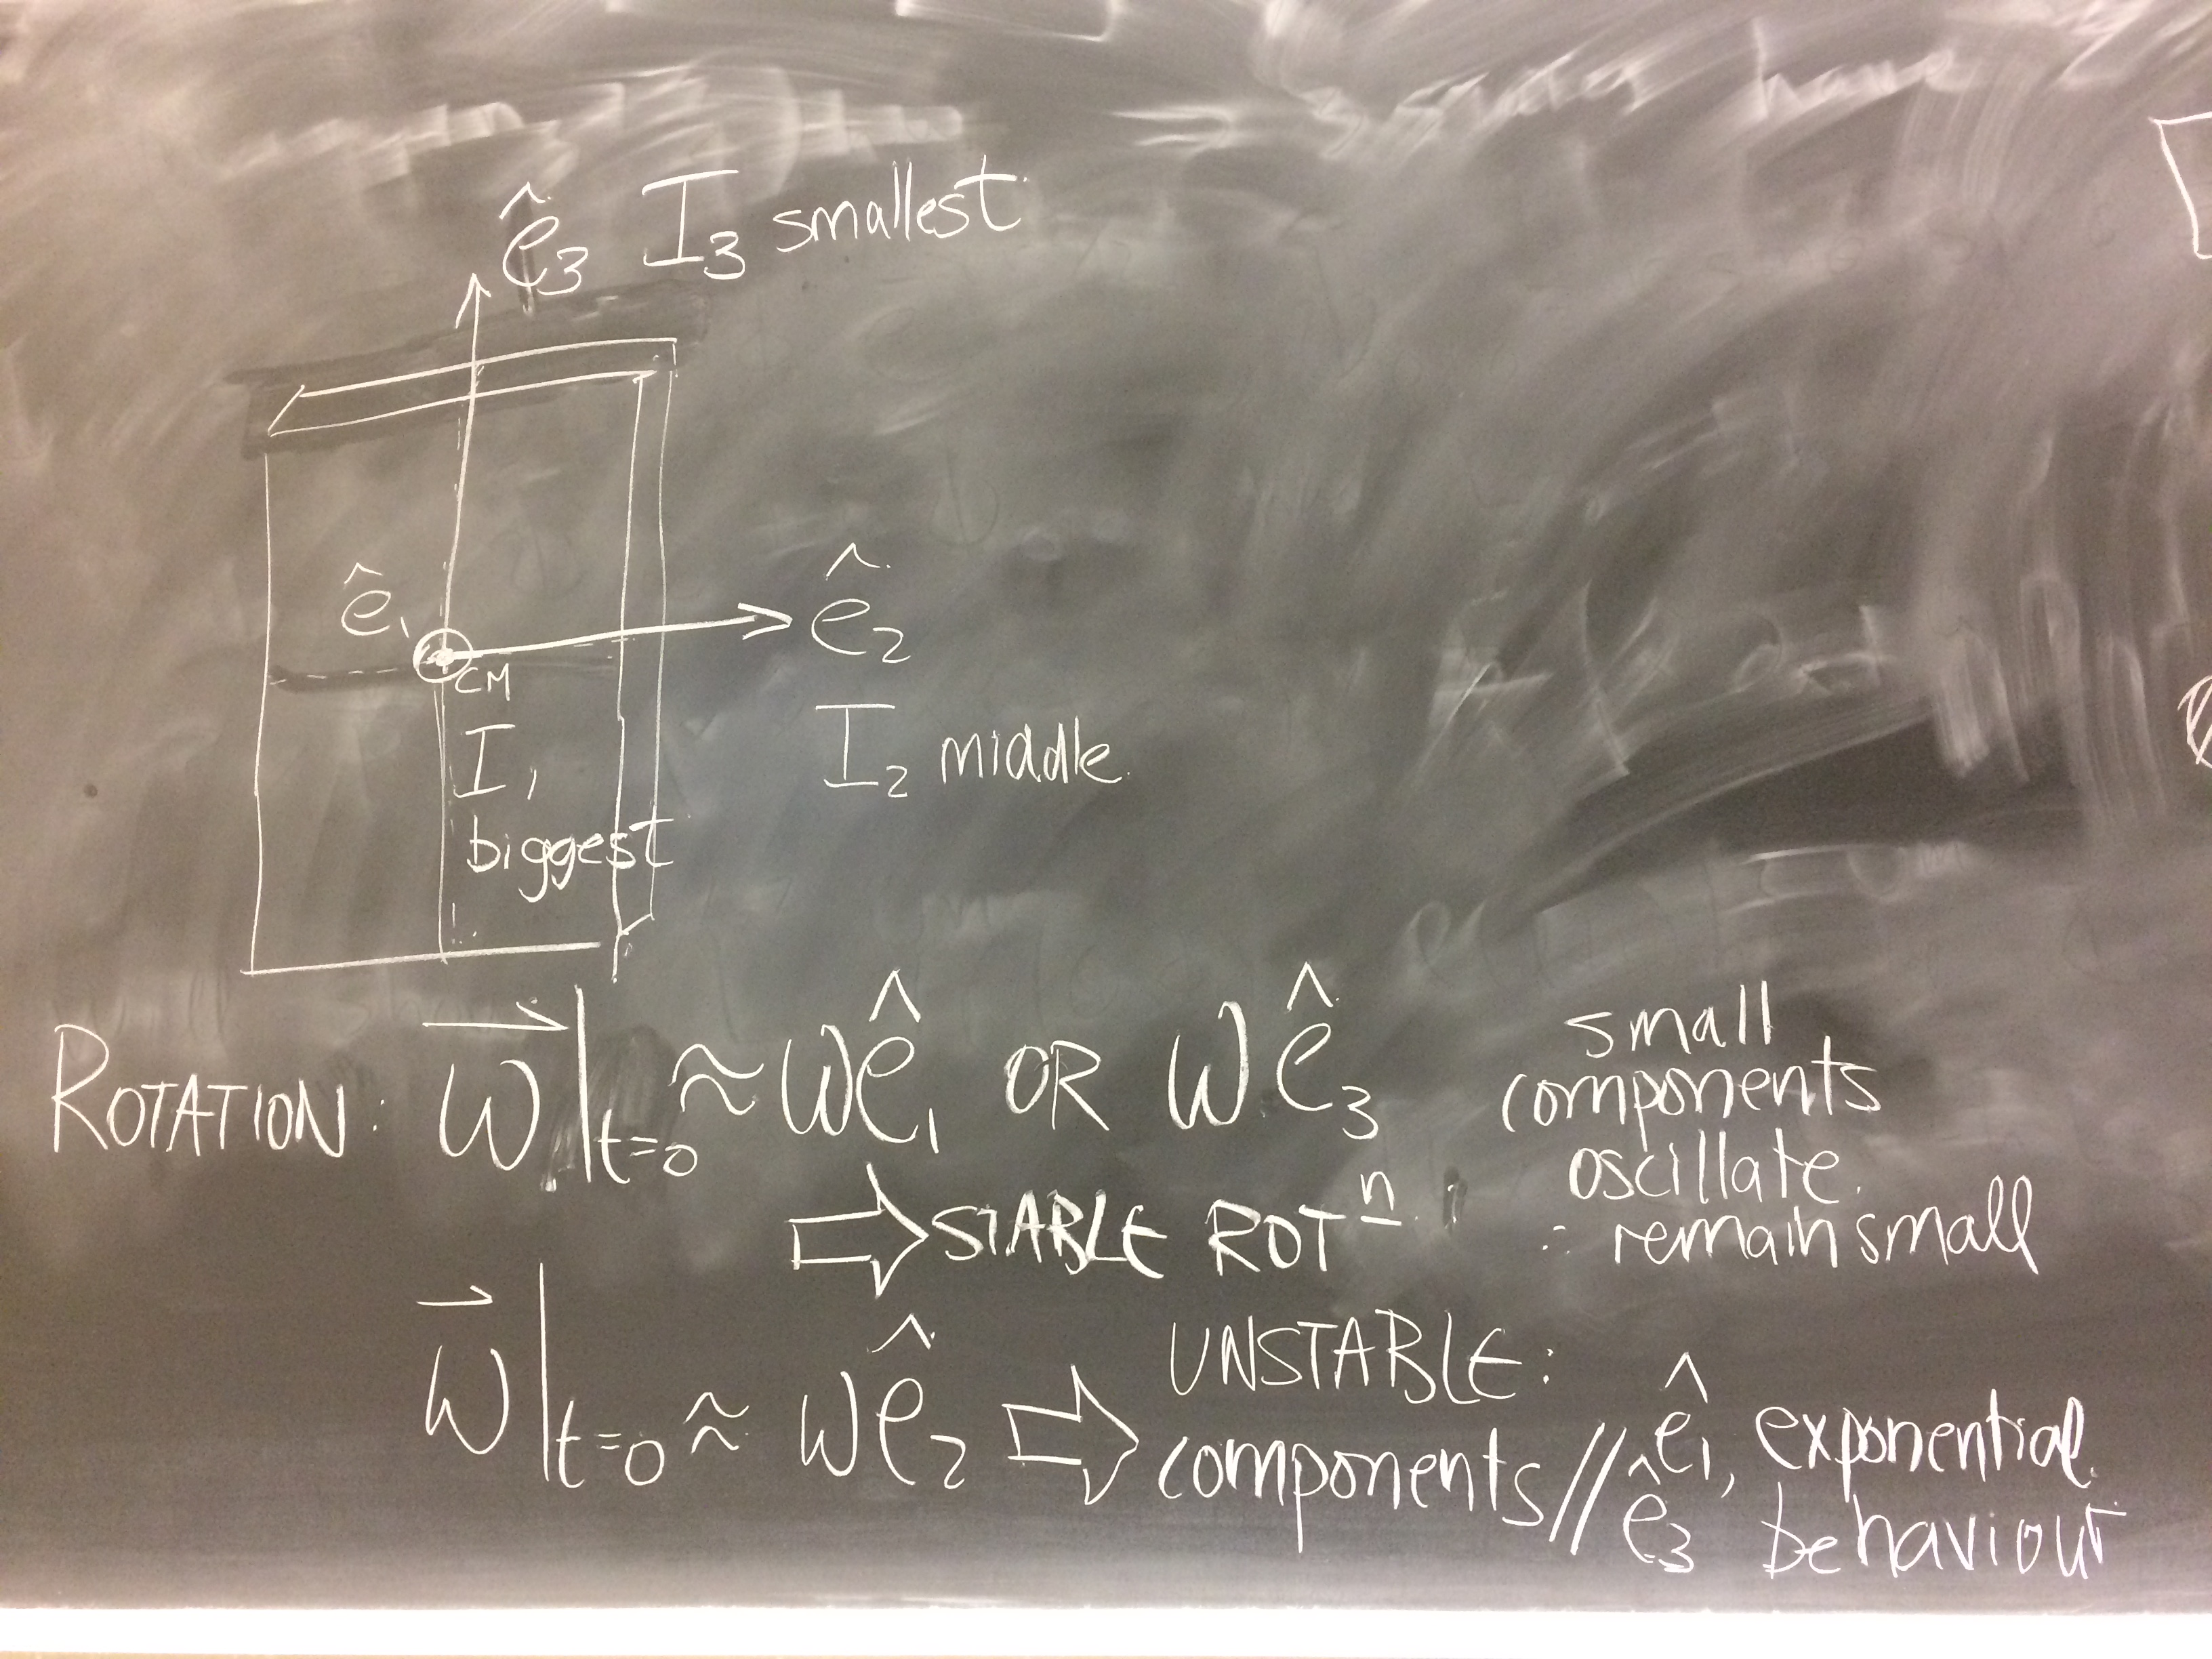 ê₃ I₃ smallest
ê₁
ê₂
CM
I₁
biggest
I₂ middle
ROTATION: ω⃗|t=0 ≈ ωê₁ OR ωê₃
small
components
oscillate
∴ remain small
⇒ STABLE ROTⁿ
ω⃗|t=0 ≈ ωê₂ ⇒ UNSTABLE:
components // ê₁, ê₃ exponential
behaviour